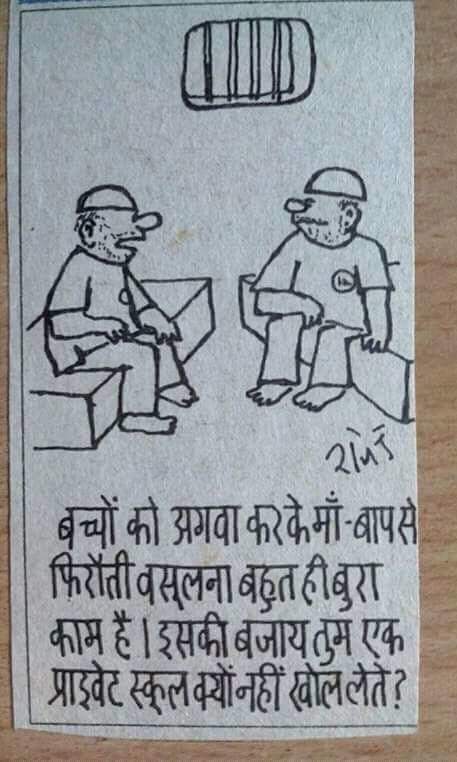 बच्चों को अगवा करके माँ-बाप से
फिरौती वसूलना बहुत ही बुरा
काम है। इसकी बजाय तुम एक
प्राइवेट स्कूल क्यों नहीं खोल लेते?